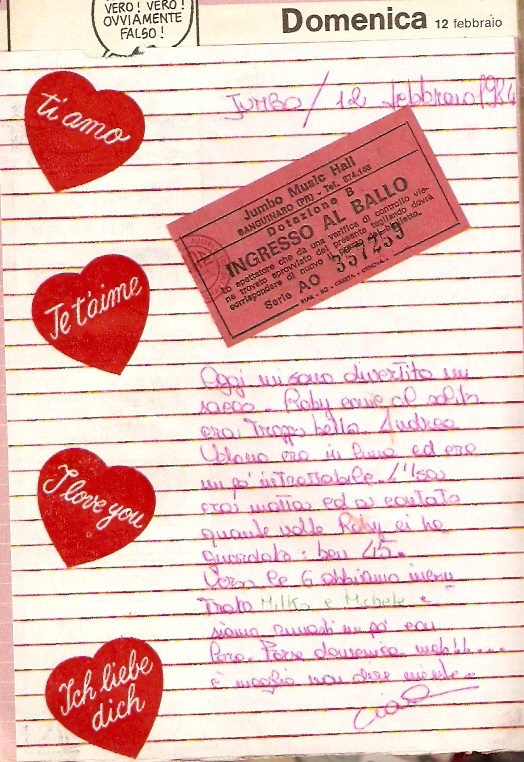 VERO! VERO!
OVVIAMENTE
FALSO!
Domenica 12 febbraio
JUMBO / 12 febbraio 1984
ti amo
Jumbo Music Hall
SANGUINARO (PR) - Tel. 874.146
Dotazione B
INGRESSO AL BALLO
Lo spettatore che da una verifica di controllo vie-
ne trovato sprovvisto del presente tagliando dovrà
corrispondere di nuovo il prezzo del biglietto.
Serie AO 357239
Je t'aime
Oggi mi sono divertita un
sacco. Roby come al solito
era troppo bello. Andrea
era in luna ed era
un po' intrattabile. L'Isa
era matta ed ha contato
quante volte Roby ci ha
guardato: ben 45.
Verso le 6 abbiamo incon
trato Milko e Michele e
siamo andati un po' con
loro. Forse domenica mahhh....
è meglio non dire niente.
Ciao
I love you
Ich liebe
dich